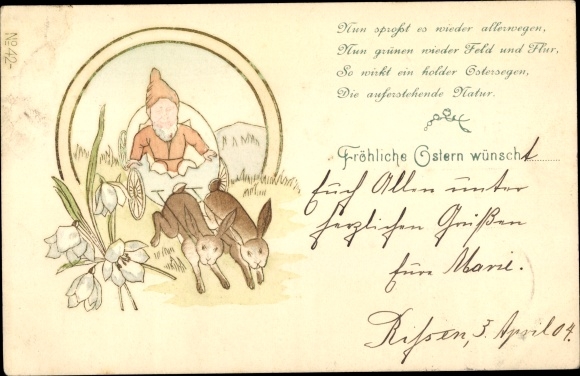 No 42-
Nun sproßt es wieder allerwegen,
Nun grünen wieder Feld und Flur,
So wirkt ein holder Ostersegen,
Die auferstehende Natur.
Fröhliche Ostern wünscht
Euch Allen unter
herzlichen Grüßen
Eure Marie.
Rissen, 3. April 04.